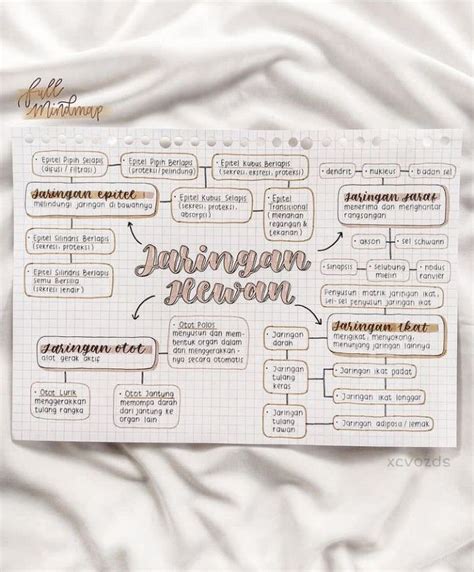 full
mindmap
• Epitel Pipih Selapis
(difusi / filtrasi)
• Epitel Pipih Berlapis
(proteksi / pelindung)
• Epitel Kubus Berlapis
(sekresi, proteksi)
Jaringan epitel
melindungi jaringan di bawahnya
• Epitel Kubus Selapis
(sekresi, proteksi,
absorpsi)
• Epitel
Transisional
(menahan
regangan &
tekanan)
• Epitel Silindris Berlapis
(sekresi, proteksi)
• Epitel Silindris Berlapis
Semu Bersilia
(sekresi lendir)
• dendrit
• nukleus
• badan sel
Jaringan saraf
menerima dan menghantar
rangsangan
• akson
• sel schwann
• sinapsis
• selubung
mielin
• nodus
ranvier
Jaringan
Hewan
Penyusun matrik jaringan ikat,
sel-sel penyusun jaringan ikat
Jaringan ikat
mengikat, menyokong,
menunjang jaringan lainnya
• Jaringan
darah
• Jaringan
tulang
keras
• Jaringan
tulang
rawan
• Jaringan ikat padat
• Jaringan ikat longgar
• Jaringan adiposa/lemak
Jaringan otot
alat gerak aktif
• Otot Polos
menyusun dan mem-
bentuk organ dalam
dan menggerakkan-
nya secara otomatis
• Otot Lurik
menggerakkan
tulang rangka
• Otot Jantung
memompa darah
dari jantung ke
organ lain
xcvozds